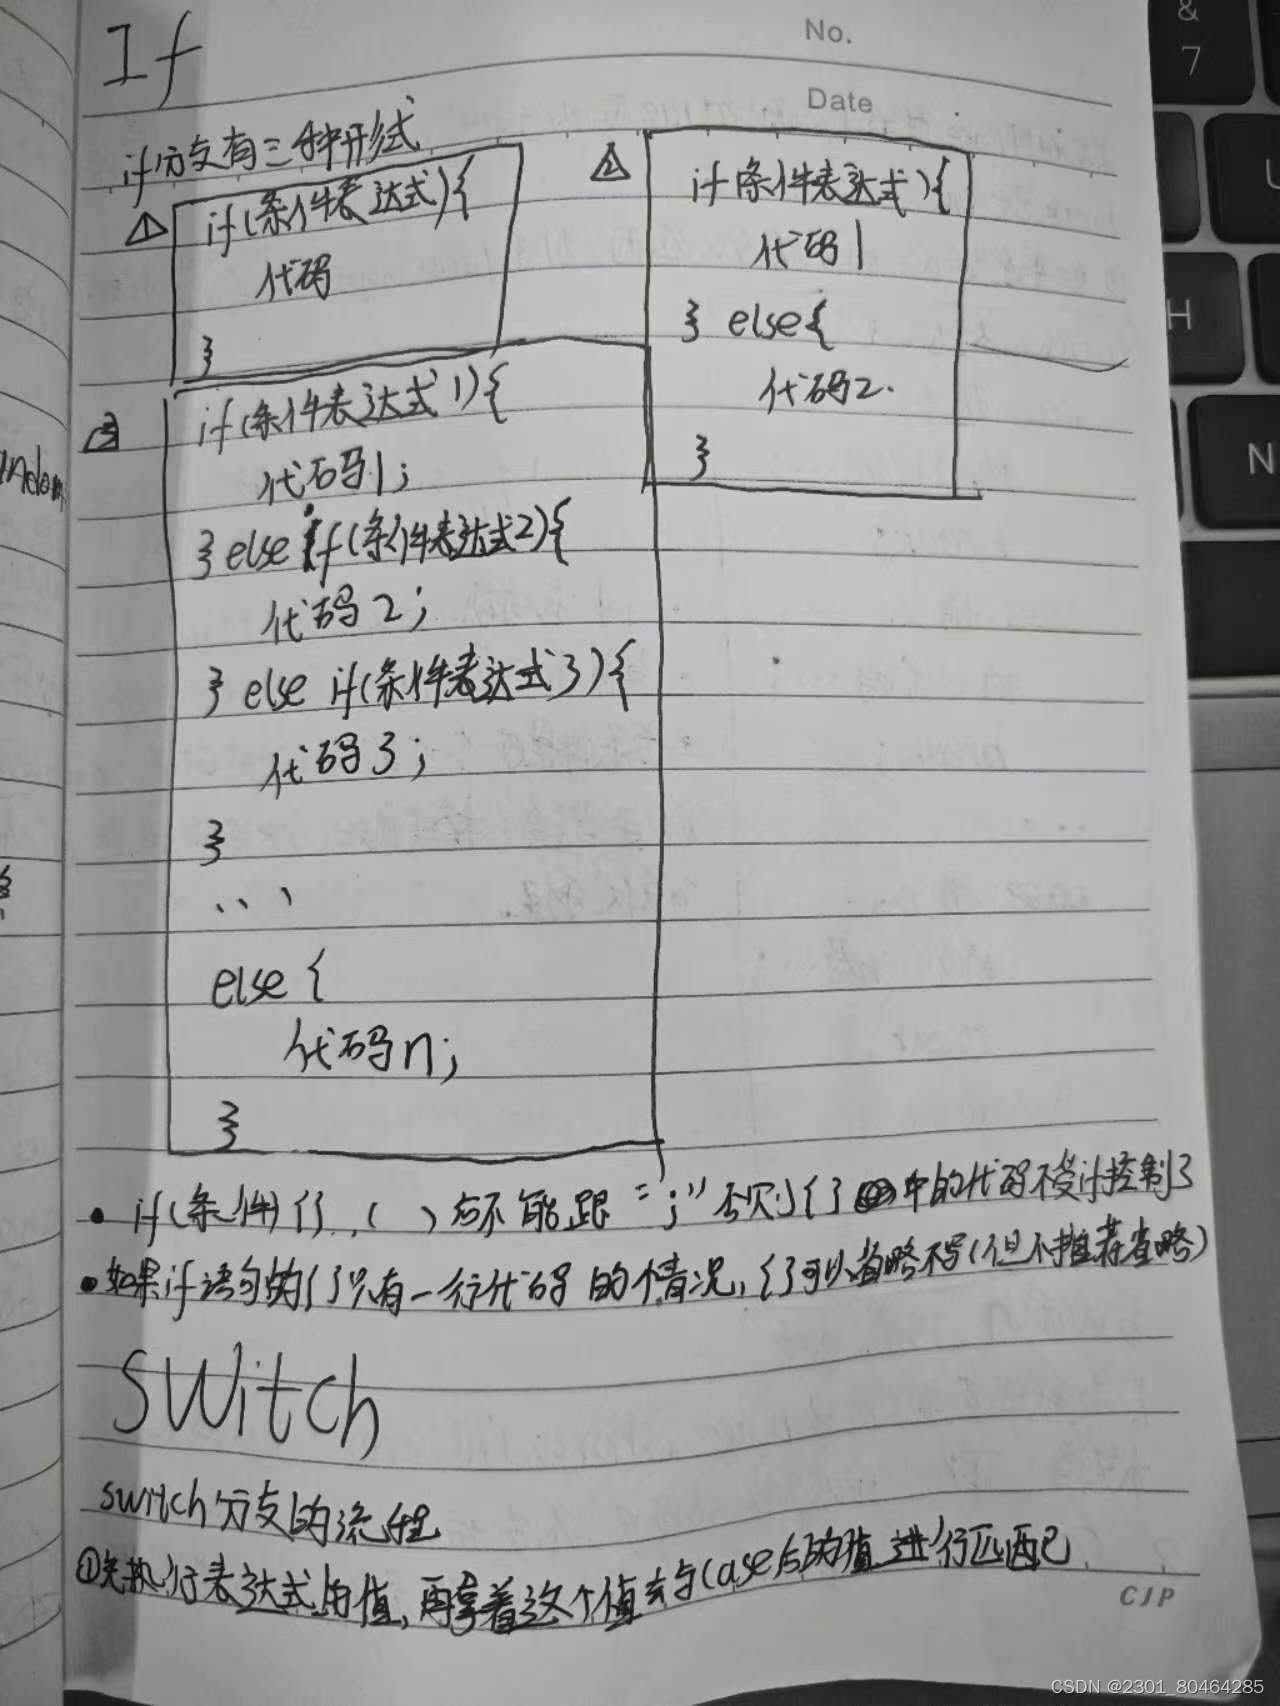 No.
Date
If
if分支有三种形式
① if(条件表达式){
代码
}
② if(条件表达式){
代码1
} else{
代码2.
}
③ if(条件表达式1){
代码1;
} else if(条件表达式2){
代码2;
} else if(条件表达式3){
代码3;
}
...
else {
代码n;
}
• if(条件){},( )后不能跟“;”否则{}中的代码不受if控制了
• 如果if语句的{}只有一行代码的情况,{}可以省略不写(但不推荐省略)
switch
switch分支的流程
①先执行表达式的值,再拿着这个值去与case后的值进行匹配
CJP
& 7
U
H
N
CSDN @2301_80464285